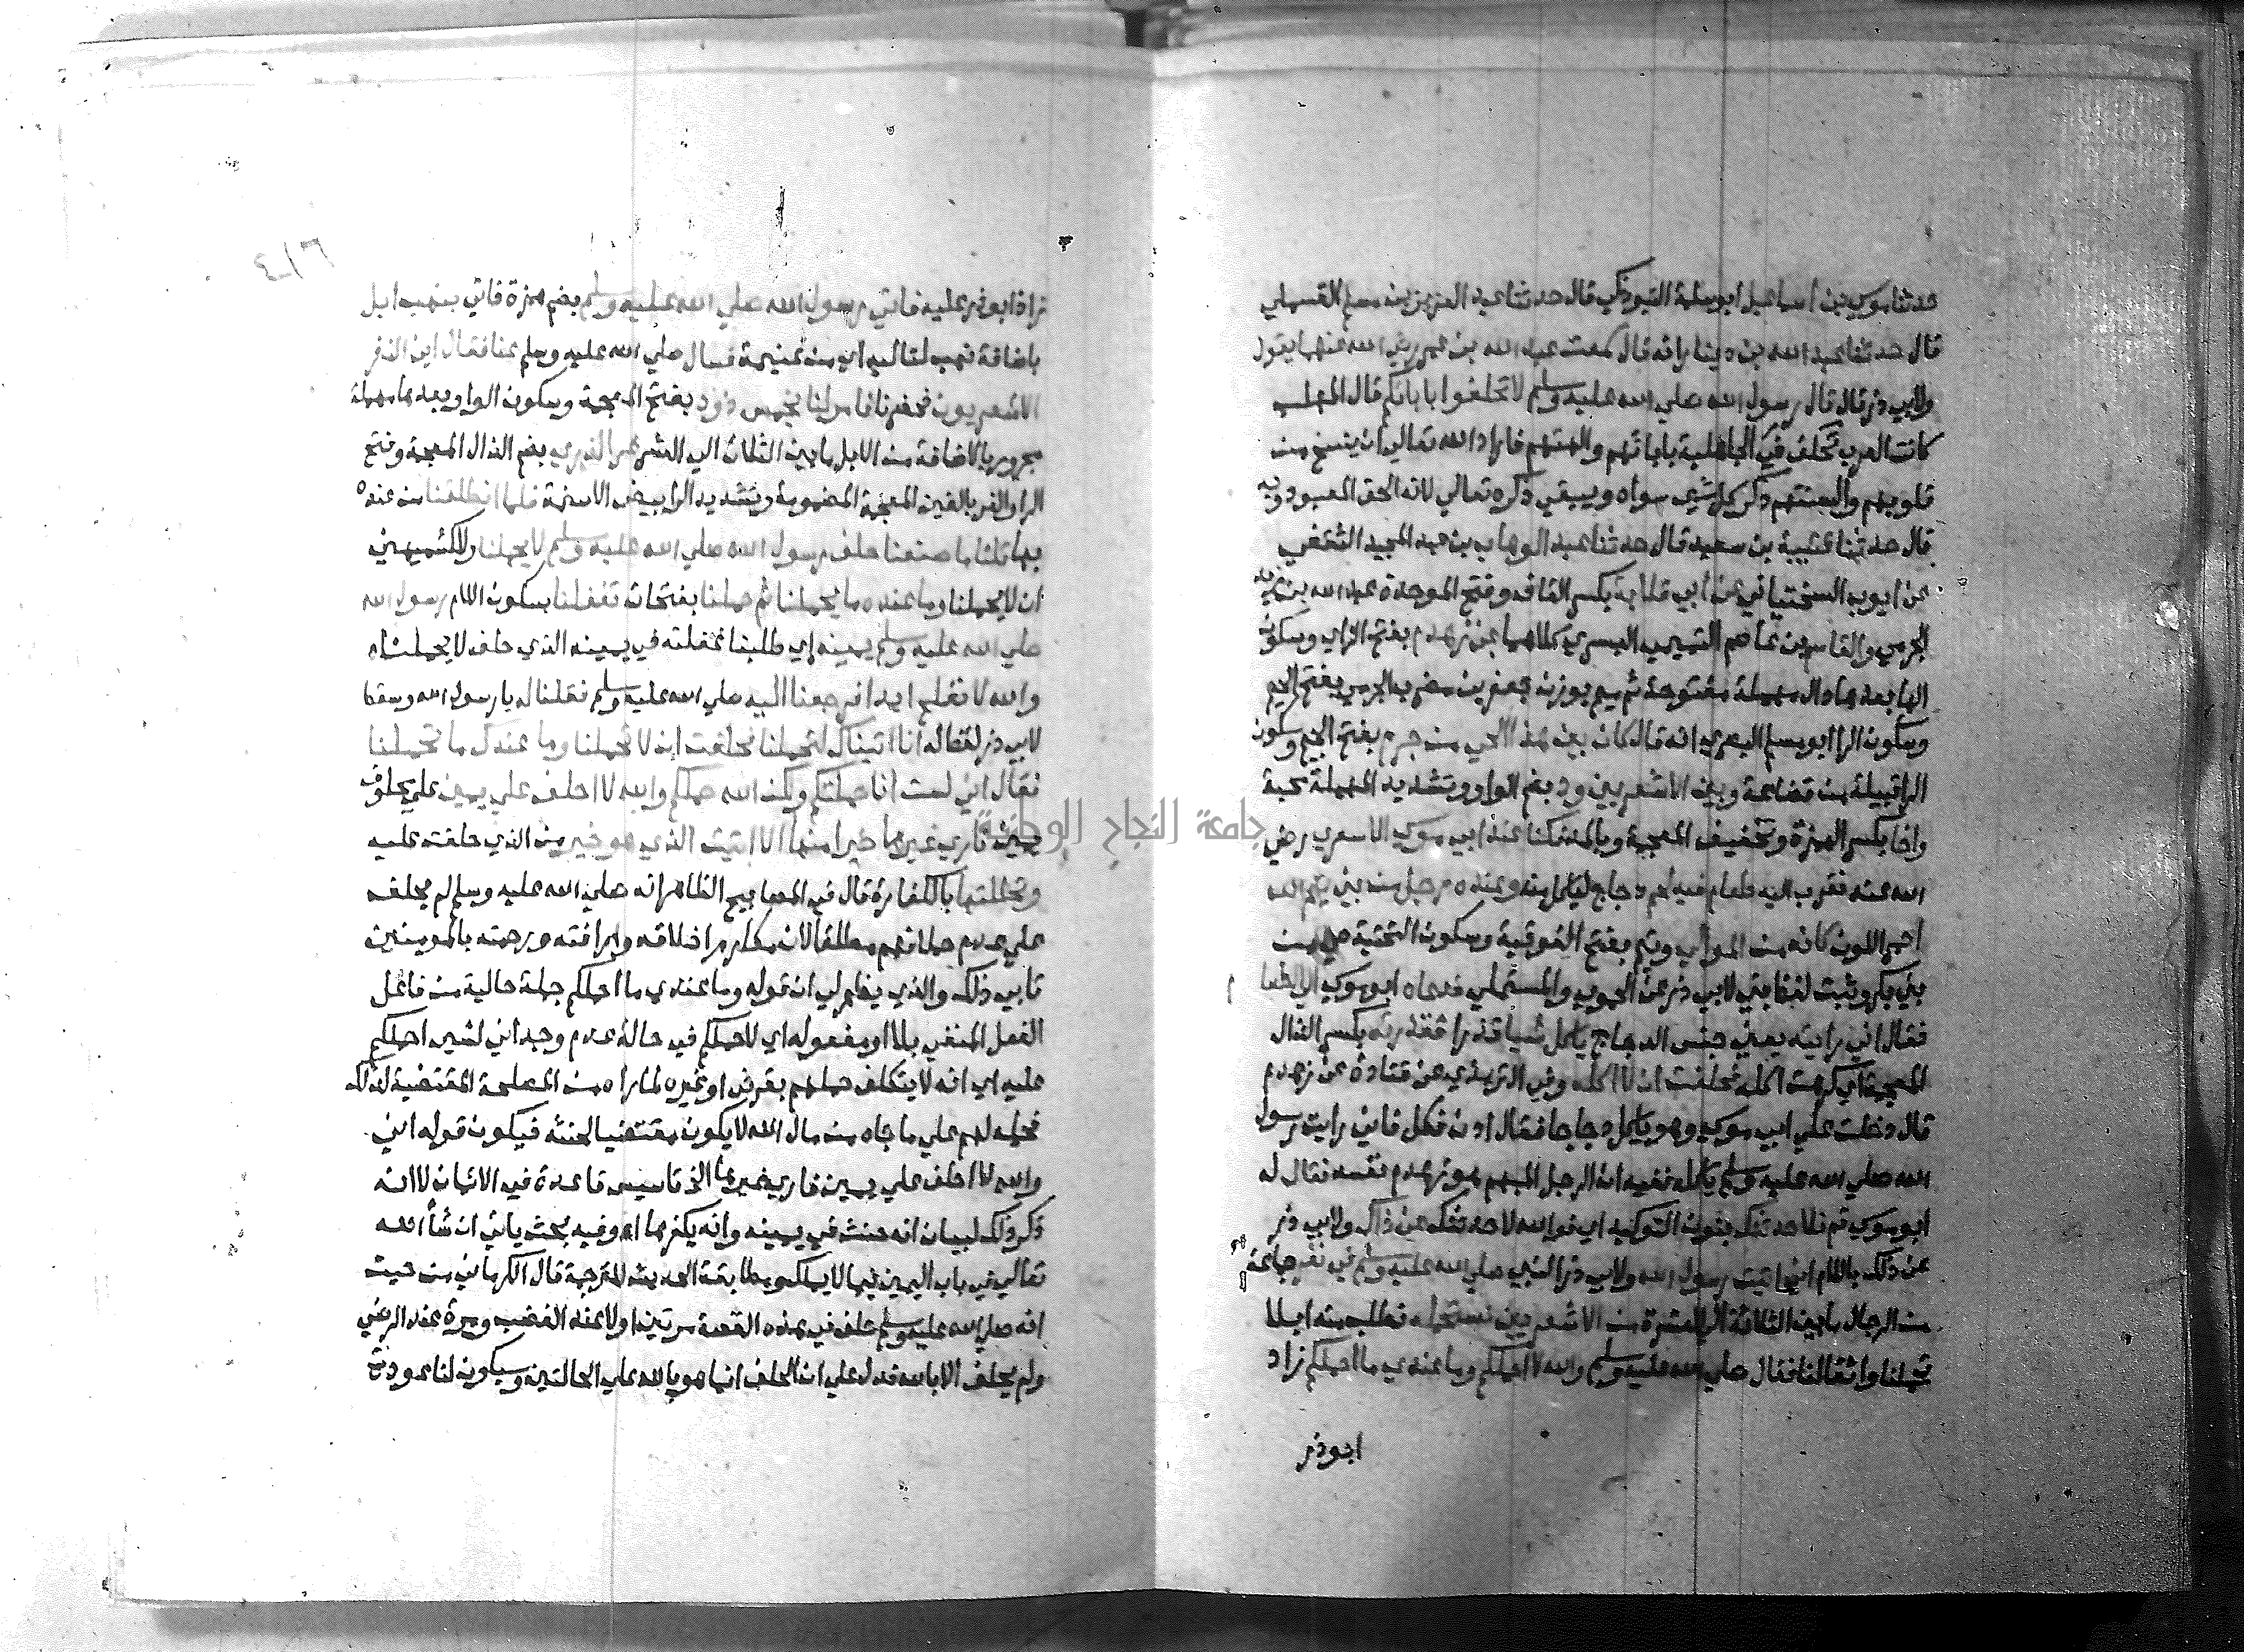 حدثنا موسي بن اسماعيل ابو سلمة التبوذكي قال حدثنا عبد العزيز بن مسلم القسملي
قال حدثنا عبد الله بن دينار انه قال سمعت عبد الله بن عمر رضي الله عنهما يقول
ولابي ذر قال قال رسول الله صلي الله عليه وسلم لا تحلفوا بابائكم قال المهلب
كانت العرب تحلف في الجاهلية باباتهم والهتهم فاراد الله تعالي ان ينسخ من
قلوبهم والسنتهم ذكر كل شي سواه ويبقي ذكره تعالي لانه الحق المعبود وبه
قال حدثنا قتيبة بن سعيد قال حدثنا عبد الوهاب بن عبد المجيد الثقفي
عن ايوب السختياني عن ابي قلابة بكسر القاف وفتح الموحدة عبد الله بن زيد
الجرمي والقاسم بن عاصم التميمي البصري كلاهما عن زهدم بفتح الزاي وسكون
الها بعدها دال مهملة مفتوحة ثم ميم بوزن جعفر بن مضرب الجرمي بفتح الجيم
وسكون الرا ابو مسلم البصري انه قال كان بين هذا الحي من جرم بفتح الجيم وسكون
الرا قبيلة من قضاعة وبين الاشعريين ود بضم الواو وتشديد المهملة محبة
واخا بكسر الهمزة وتخفيف المعجمة وبالمد فكنا عند ابي موسي الاسعري رضي
الله عنه فقرب اليه طعام فيه لحم دجاج لياكل منه وعنده رجل من بني تيم الله
احمر اللون كانه من الموالي وتيم بفتح الفوقية وسكون التحتية حي من
بني بكر وثبت لفظ بني لابي ذر عن الحموي والمستملي فدعاه ابو موسي الي الطعا م
فقال اني رايته يعني جنس الدجاج ياكل شيا قذرا فقذرته بكسر الذال
المعجمة اي كرهت اكله فحلفت ان لا اكله وفي الترمذي عن قتادة عن زهدم
قال دخلت علي ابي موسي وهو ياكل دجاجا فقال ادن فكل فاني رايت رسول
الله صلي الله عليه وسلم ياكله ففيه ان الرجل المبهم هو زهدم نفسه فقال له
ابو موسي قم فلا حدثنك بنون التوكيد اي فوالله لاحدثنك عن ذاك ولابي ذر
عن ذلك باللام اني اتيت رسول الله ولابي ذر النبي صلي الله عليه وسلم في نفر جماعة
من الرجال ما بين الثلاثة الي العشرة من الاشعريين نستحمله نطلب منه ابلا
تحملنا واثقالنا فقال صلي الله عليه وسلم والله لا احملكم وما عندي ما احملكم زاد
ابو ذر
٤١٦
زاد ابو ذر عليه فاتي رسول الله صلي الله عليه وسلم بضم همزة فاتي بنهب ابل
باضافة نهب لتاليه اي من غنيمة فسال صلي الله عليه وسلم عنا فقال اين النفر
الاشعريون فحضرنا فامر لنا بخمس ذود بفتح المعجمة وسكون الواو بعدها مهملة
مجرور بالاضافة من الابل ما بين الثلاث الي العشر غر الذري بضم الذال المعجمة وفتح
الرا والغر بالغين المعجمة المضمومة وتشديد الرا بيض الاسنمة فلما انطلقنا من عنده
بها قلنا ما صنعنا حلف رسول الله صلي الله عليه وسلم لا يحملنا وللكشميهني
ان لا يحملنا وما عنده ما يحملنا ثم حملنا بفتحات تغفلنا بسكون اللام رسول الله
صلي الله عليه وسلم يمينه اي طلبنا غفلته في يمينه الذي حلف لا يحملناه
والله لا نفلح ابدا فرجعنا اليه صلي الله عليه وسلم فقلنا له يا رسول الله وسقط
لابي ذر لفظ له انا اتيناك لتحملنا فحلفت ان لا تحملنا وما عندك ما تحملنا
فقال اني لست انا حملتكم ولكن الله حملكم والله لا احلف علي يمين علي محلوف
يمين فاري غيرها خيرا منها الا اتيت الذي هو خير من الذي حلفت عليه
وتحللتها بالكفارة قال في المصابيح الظاهر انه صلي الله عليه وسلم لم يحلف
علي عدم حملانهم مطلقا لان مكارم اخلاقه ورافته ورحمته بالمومنين
تابي ذلك والذي يظهر لي ان قوله وما عندي ما احملكم جملة حالية من فاعل
الفعل المنفي بلا او مفعوله اي لا احملكم في حالة عدم وجداني لشي احملكم
عليه اي انه لا يتكلف حملهم بقرض او غيره لما راه من المصلحة المقتضية لذلك
فحمله لهم علي ما جاه من مال الله لا يكون مقتضيا لحنثه فيكون قوله اني
والله لا احلف علي يمين فاري غيرها الخ تاسيس قاعدة في الايمان لا انه
ذكر ذلك لبيان انه حنث في يمينه وانه يكفرها اه وفيه بحث ياتي ان شا الله
تعالي في باب اليمين فيما لا يملك ومطابقة الحديث للترجمة قال الكرماني من حيث
انه صلي الله عليه وسلم حلف في هذه القصة مرتين اولا عند الغضب ومرة عند الرضي
ولم يحلف الا بالله فدل علي ان الحلف انما هو بالله علي الحالتين وسيكون لنا عودة
جامعة النجاح الوطنية